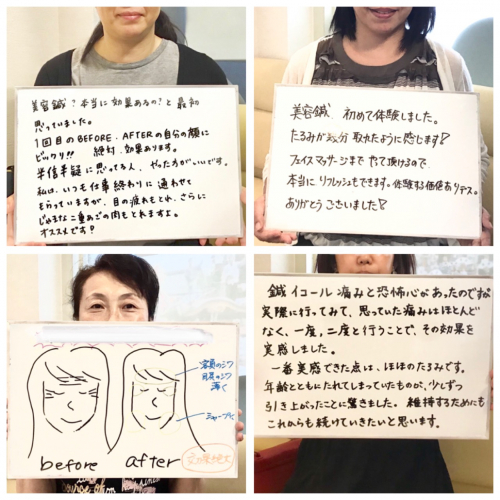 美容鍼？本当に効果あるの？と最初
思っていました。
1回目のBEFORE．AFTERの自分の顔に
ビックリ!! 絶対、効果あります。
半信半疑に思ってる人、やった方がいいです。
私は、いつも仕事終わりに通わせて
もらっていますが、目の疲れもとれ、さらに
じゃまな二重あごの肉もとれますよ。
オススメです！
美容鍼 初めて体験しました。
たるみが幾分取れたように感じます！
フェイスマッサージまでやて頂けるので、
本当にリフレッシュもできます。体験する価値ありデス。
ありがとうございました！
額のシワ
目尻のシワ
薄く
シャープに
before after
鍼イコール痛みと恐怖心があったのですが
実際に行ってみて、思っていた痛みはほとんど
なく、一度、二度と行うことで、その効果を
実感しました。
一番実感できた点は、ほほのたるみです。
年齢とともにたれてしまっていたものが、少しずつ
引き上がったことに驚きました。維持するためにも
これからも続けていきたいと思います。